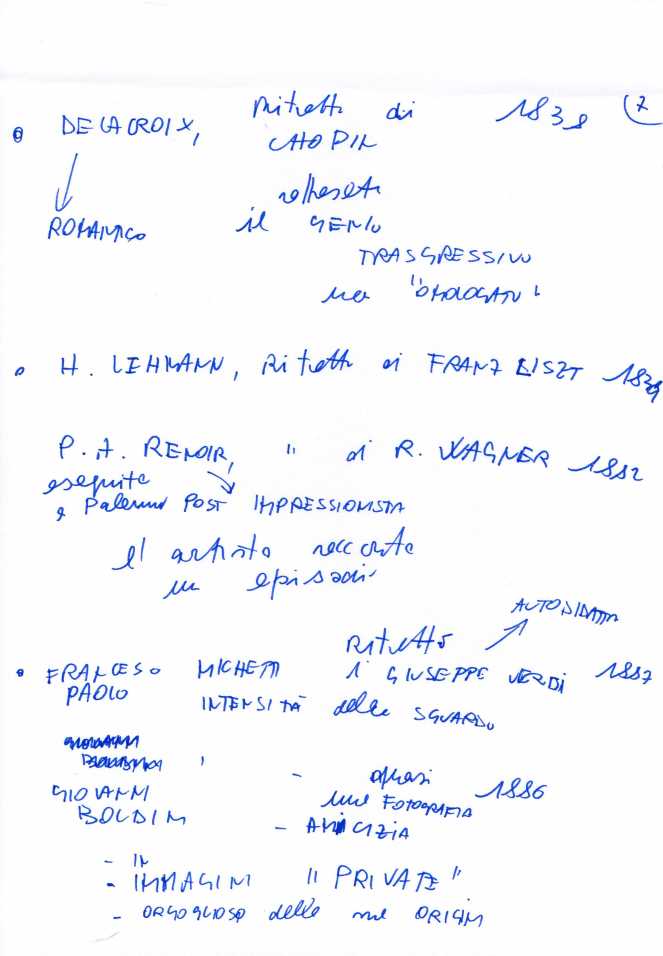 DELACROIX, Ritratto di 1838 (7
CHOPIN
ROMANTICO
il GENIO
TRASGRESSIVO
ma "OMOLOGATO"
H. LEHMANN, Ritratto di FRANZ LISZT 1839
P. A. RENOIR, " di R. WAGNER 1882
eseguito
a Palermo POST IMPRESSIONISTA
l'artista racconta
un episodio
AUTODIDATTA
Ritratto
FRANCESO MICHETTI di GIUSEPPE VERDI 1887
PAOLO INTENSITÀ dello SGUARDO
GIOVANNI
BOLDINI
- quasi 1886
una FOTOGRAFIA
- AMICIZIA
- IN
- IMMAGINI "PRIVATE"
- ORGOGLIOSO delle sue ORIGINI